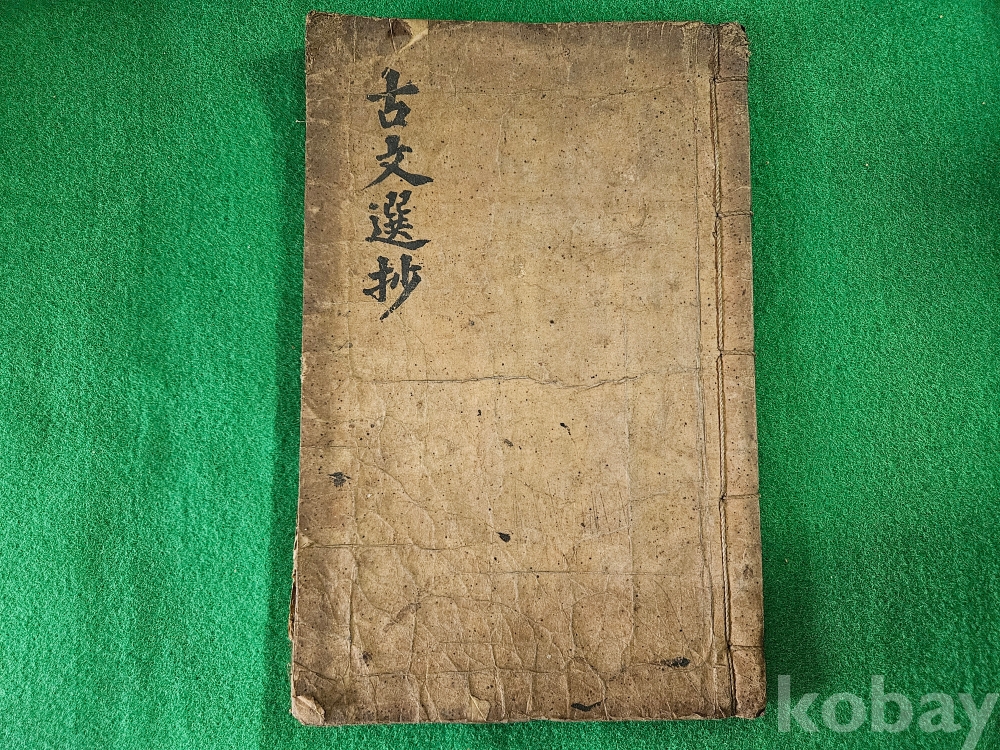 古文選抄
kobay